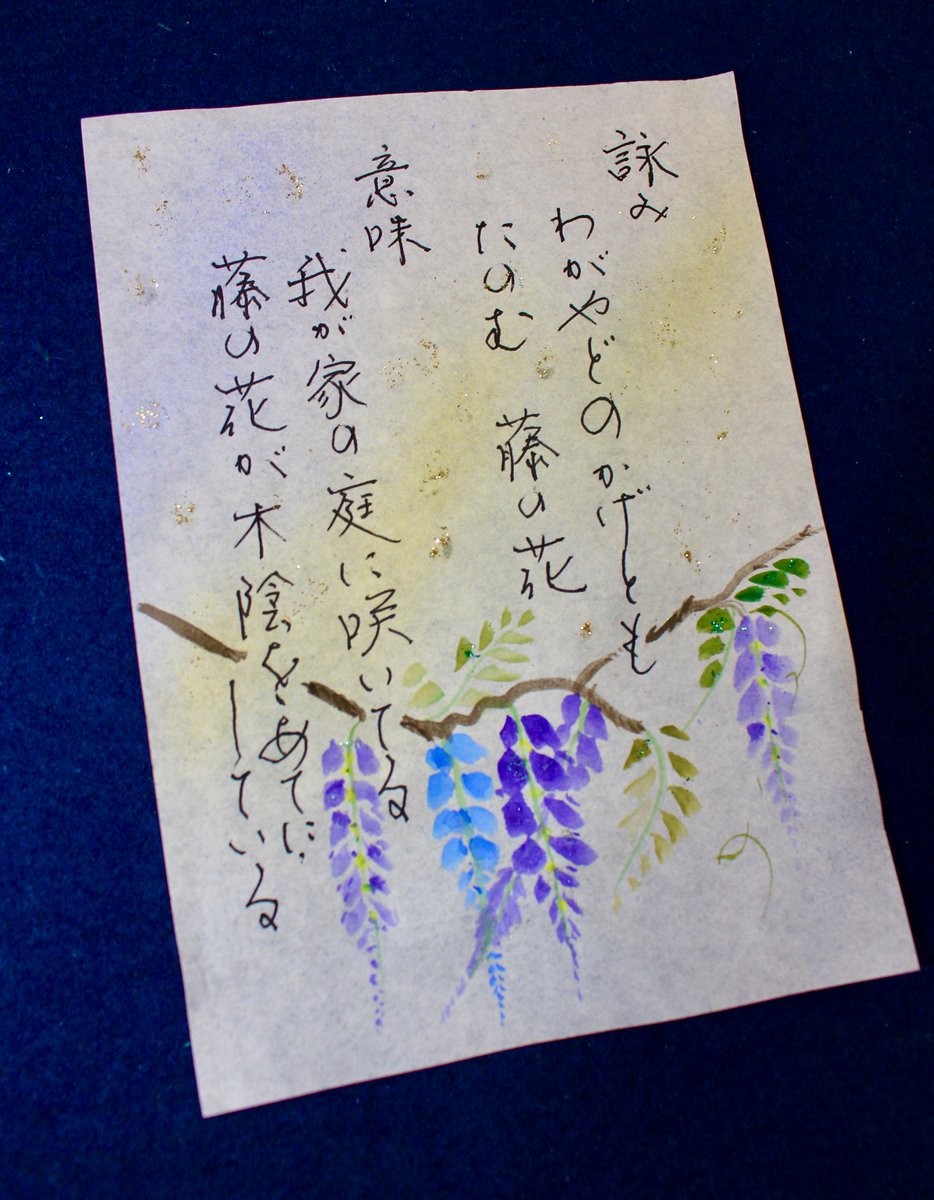 詠み
わがやどのかげとも
たのむ 藤の花
意味
我が家の庭に咲いてる
藤の花が木陰をあてに
している